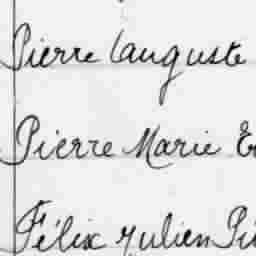 Pierre Cauguste
Pierre Marie
Félix Julien